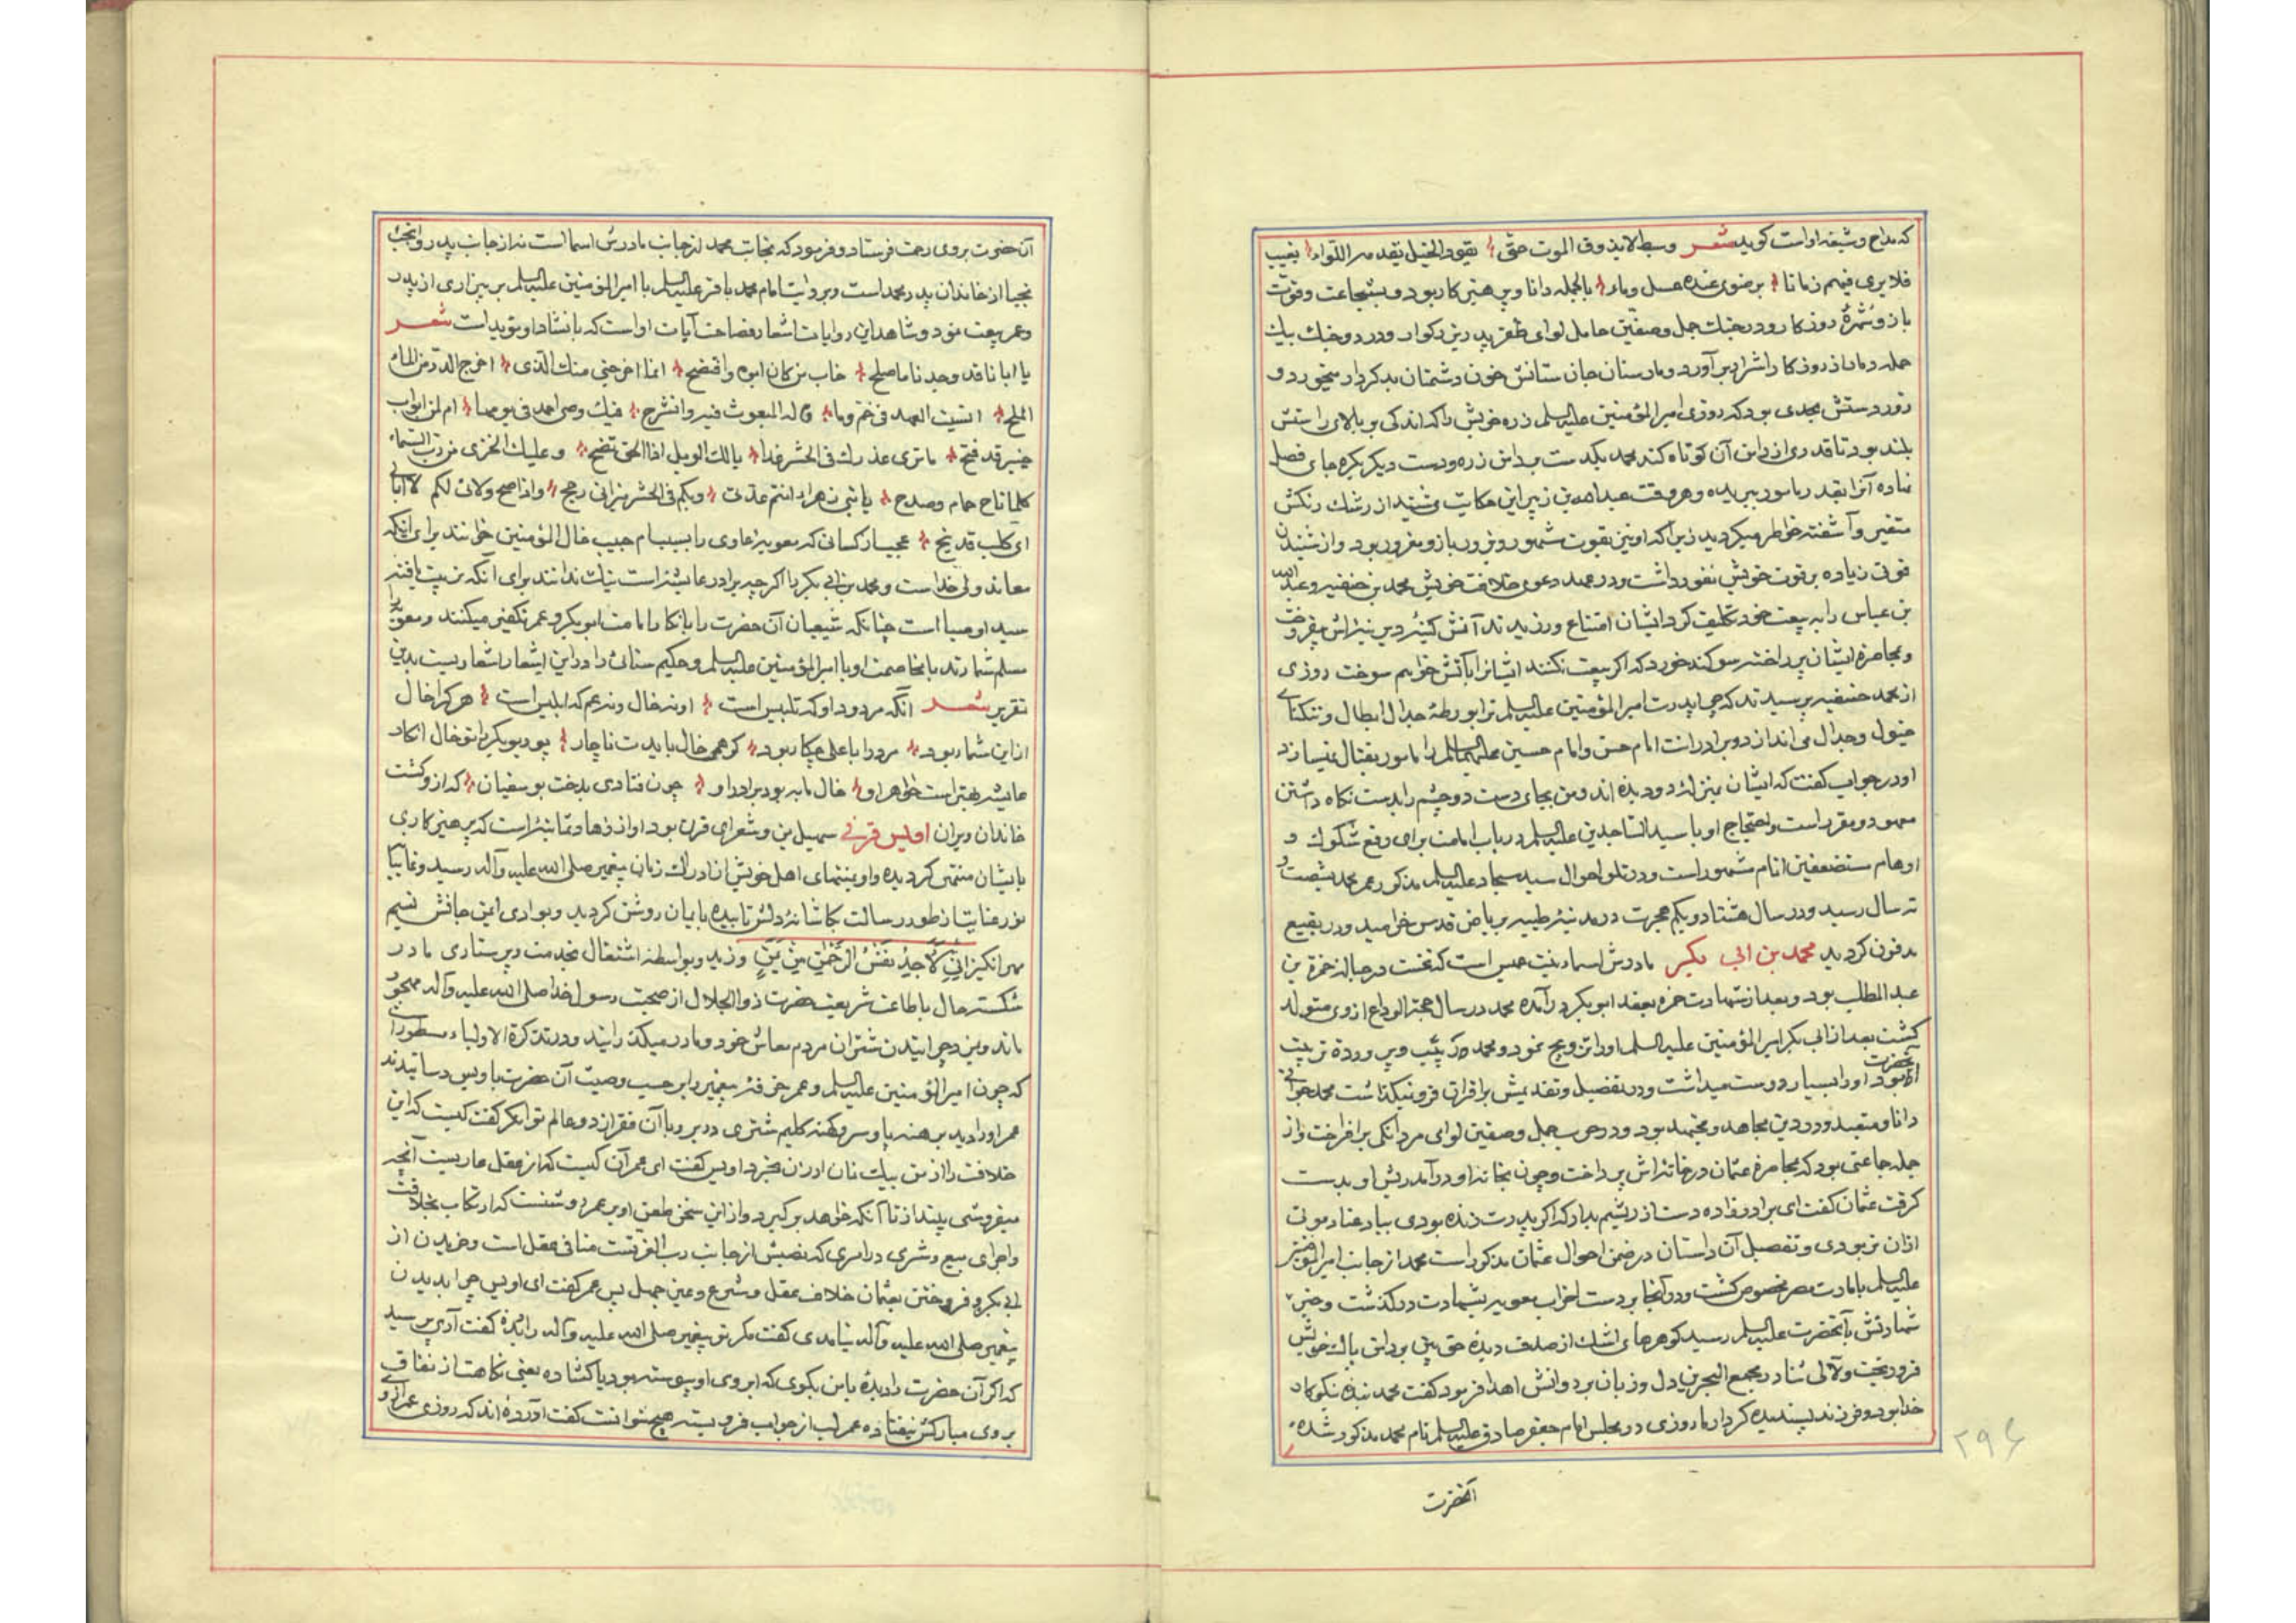 که مداح و شیعه او است کوید شعر وسط لایذوق الموت حتی یقود الخیل یقدمه اللواء یغیب
فلا یری فیهم زمانا برضوی عنده عسل وماء بالجمله دانا و پرهیزکار بود و بشجاعت و قوت
بازو شهرهٔ روزکار و در جنک جمل و صفین حامل لوای ظفر پدر بزرکوار و در دو جنک بیک
حمله دمار از روزکار اشرار برآورد و مار سنان جان ستانش خون دشمنان بدکردار میخورد و
زور دستش بحدی بود که روزی امیرالمؤمنین علیه السلم زره خویش را که اندکی بر بالای راستش
بلند بود تا قدری از دامن آن کوتاه کند محمد بیکدست دامن زره و دست دیکر بکره جای فصل
نهاده آنرا بقدر مأمور ببریده و هر وقت عبدالله بن زبیر این حکایت می شنید از رشک رنکش
متغیر و آشفته خاطر میکردید زیرا که او نیز بقوت مشهور و بزور بازو مغرور بود و از شنیدن
قوتی زیاده بر قوت خویش نفور داشت و در عهد دعوی خلافت خویش محمد بن حنفیه و عبدالله
بن عباس را به بیعت خود تکلیف کرد ایشان امتناع ورزیدند آتش کینهٔ دیرینه اش بیفروخت
و بمحاصرهٔ ایشان پرداخته سوکند خورد که اکر بیعت نکنند ایشانرا بآتش خواهم سوخت روزی
از محمد حنفیه پرسیدند که چرا پدرت امیرالمؤمنین علیه السلم ترا بورطهٔ جدال ابطال و تنکنای
خیول و جدال می اندازد و برادرانت امام حسن و امام حسین علیهما السلم را مأمور بقتال نمیسازد
او در جواب کفت که ایشان بمنزلهٔ دو دیده اند و من بجای دست دو چشم را بدست نکاه داشتن
معهود و مقرر است و احتجاج او با سید الساجدین علیه السلم در باب امامت برای رفع شکوک و
اوهام مستضعفین انام مشهور است و در تلو احوال سید سجاد علیه السلم مذکور عمر محمد بشصت و
نه سال رسید و در سال هشتاد و یکم هجرت در مدینهٔ طیبه بریاض قدس خرامید و در بقیع
مدفون کردید محمد بن ابی بکر مادرش اسماء بنت عمیس است که نخست در حباله حمزة بن
عبدالمطلب بود و بعد از شهادت حمزه بعقد ابوبکر درآمده محمد در سال حجة الوداع از وی متولد
کشت بعد از ابی بکر امیرالمؤمنین علیه السلم او را تزویج نمود و محمد که ربیب و پروردهٔ تربیت
آنحضرت بود او را بسیار دوست میداشت و در تفضیل و تقدیمش بر اقران فرو نمیکذاشت محمد جوانی
دانا و متعبد و در دین مجاهد و مجتهد بود و در حرب جمل و صفین لوای مردانکی برافراخت و از
جمله جماعتی بود که بمحاصرهٔ عثمان در خانه اش پرداخت و چون بخانه او درآمد ریش او بدست
کرفت عثمان کفت ای برادرزاده دست از ریشم بدار که اکر پدرت زنده بودی بیاد عناد موتی
ازان نربودی و تفصیل آن داستان در ضمن احوال عثمان مذکور است محمد از جانب امیرالمؤمنین
علیه السلم بامارت مصر مخصوص کشت و در آنجا بر دست احزاب معویه بشهادت درکذشت و خبر
شهادتش بآنحضرت علیه السلم رسید کوهرهای اشک از صدف دیده حق بین بر دامن پاک خویش
فرو ریخت و لآلی ثنا در مجمع البحرین دل و زبان بر روانش اهدا فرمود کفت محمد بنده نیکوکار
خدا بود و فرزند پسندیده کردار ما روزی در مجلس امام جعفر صادق علیه السلم نام محمد مذکور شده
آنحضرت
۲۹۶
آن حضرت بروی رحمت فرستاد و فرمود که نجابت محمد از جانب مادرش اسما است نه از جانب پدر و انجب
نجبا از خاندان پدر محمد است و بروایت امام محمد باقر علیه السلم با امیرالمؤمنین علیه السلم بر بیزاری از پدر
و عمر بیعت نمود و شاهد این روایات اشعار فصاحت آیات او است که بانشاد او مؤید است شعر
یا ابانا قد وجدنا ما صلح خاب من کان ابوه وافتضح انما اخرجنی منک الذی اخرج الدر من الماء
الملح انسیت العهد فی خم وما قاله المبعوث فیه وانشرح فیک وصی احمد فی یومها ام لمن ابواب
خیبر قد فتح ما تری عذرک فی الحشر غدا یا لک الویل اذا الحق تضح و علیک الخزی من رب السماء
کلما ناح حمام وصدح یا بنی زهراء انتم عدتی وبکم فی الحشر میزانی رجح واذا صح ولائی لکم لا ابالی
ای کلب قد نبح عجب از کسانی که معویه غاوی را بسبب ام حبیب خال المؤمنین خوانند برای اینکه
معاند ولی خداست و محمد بن ابی بکر را اکرچه برادر عایشه است نیک ندانند برای آنکه تربیت یافته
سید اوصیا است چنانکه شیعیان آن حضرت را بانکار امامت ابوبکر و عمر تکفیر میکنند و معویه را
مسلم شمارند با مخاصمت او با امیرالمؤمنین علیه السلم و حکیم سنائی را در این اشعار اشعاریست بدین
تقریر شعر آنکه مردود او که تلبیس است او نه خال و نه عم که ابلیس است هر کرا خال
از این شمار بود مرد را با علی چکار بود کر همی خال بایدت ناچار پور بوبکر را تو خال انکار
عایشه بهتر است خواهر او خال ما به بود برادر او چون فتادی بدخت بوسفیان که ازو کشت
خاندان ویران اویس قرنی سهیل یمن و شعرای قرن بود آوازهٔ زهد و تمامیت است که پرهیزکاری
بایشان منتمی کردیده و او بمنتهای اهل خویش از ادراک زمان پیغمبر صلی الله علیه وآله رسید و غایبا
نور عنایت از طور رسالت بکاشانهٔ دلش تابیده بایمان روشن کردید و بوادی ایمن جانش نسیم
مهرانکیز انی لاجد نفس الرحمن من یمن وزید و بواسطه اشتغال بخدمت و پرستاری مادر
شکسته حال باطاعت شریعت حضرت ذوالجلال از صحبت رسول خدا صلی الله علیه وآله مهجور
ماند و بمزد چرانیدن شتران مردم معاش خود و مادر میکذرانید و در تذکرة الاولیاء مسطور است
که چون امیرالمؤمنین علیه السلم و عمر خرقهٔ پیغمبر را بر حسب وصیت آن حضرت باویس رسانیدند
عمر او را دید برهنه پا و سر و کهنه کلیم شتری در بر با آن فقر از دو عالم توانکر کفت کیست که این
خلافت را از من بیک نان ارزان بخرد اویس کفت ای عمر آن کیست که از عقل عاریست آنچه
میفروشی بینداز تا آنکه خواهد برکیرد و از این سخن طعن او بر عمر دو شنست که ارتکاب بخلافت
و اجرای بیع و شری در امری که نصبش از جانب رب العزتست منافی عقل است و خریدن از
ابی بکر و فروختن بعثمان خلاف عقل و شرع و عین جهل پس عمر کفت ای اویس چرا بدیدن
پیغمبر صلی الله علیه وآله نیامدی کفت مکر تو پیغمبر صلی الله علیه وآله را دیدهٔ کفت آری پرسید
که اکر آن حضرت را دیدهٔ با من بکوی که ابروی او پیوسته بود یا کشاده یعنی نکاهت از نفاق
بروی مبارکش نیفتاده عمر لب از جواب فرو بسته هیچ نتوانست کفت آورده اند که روزی عمر از او